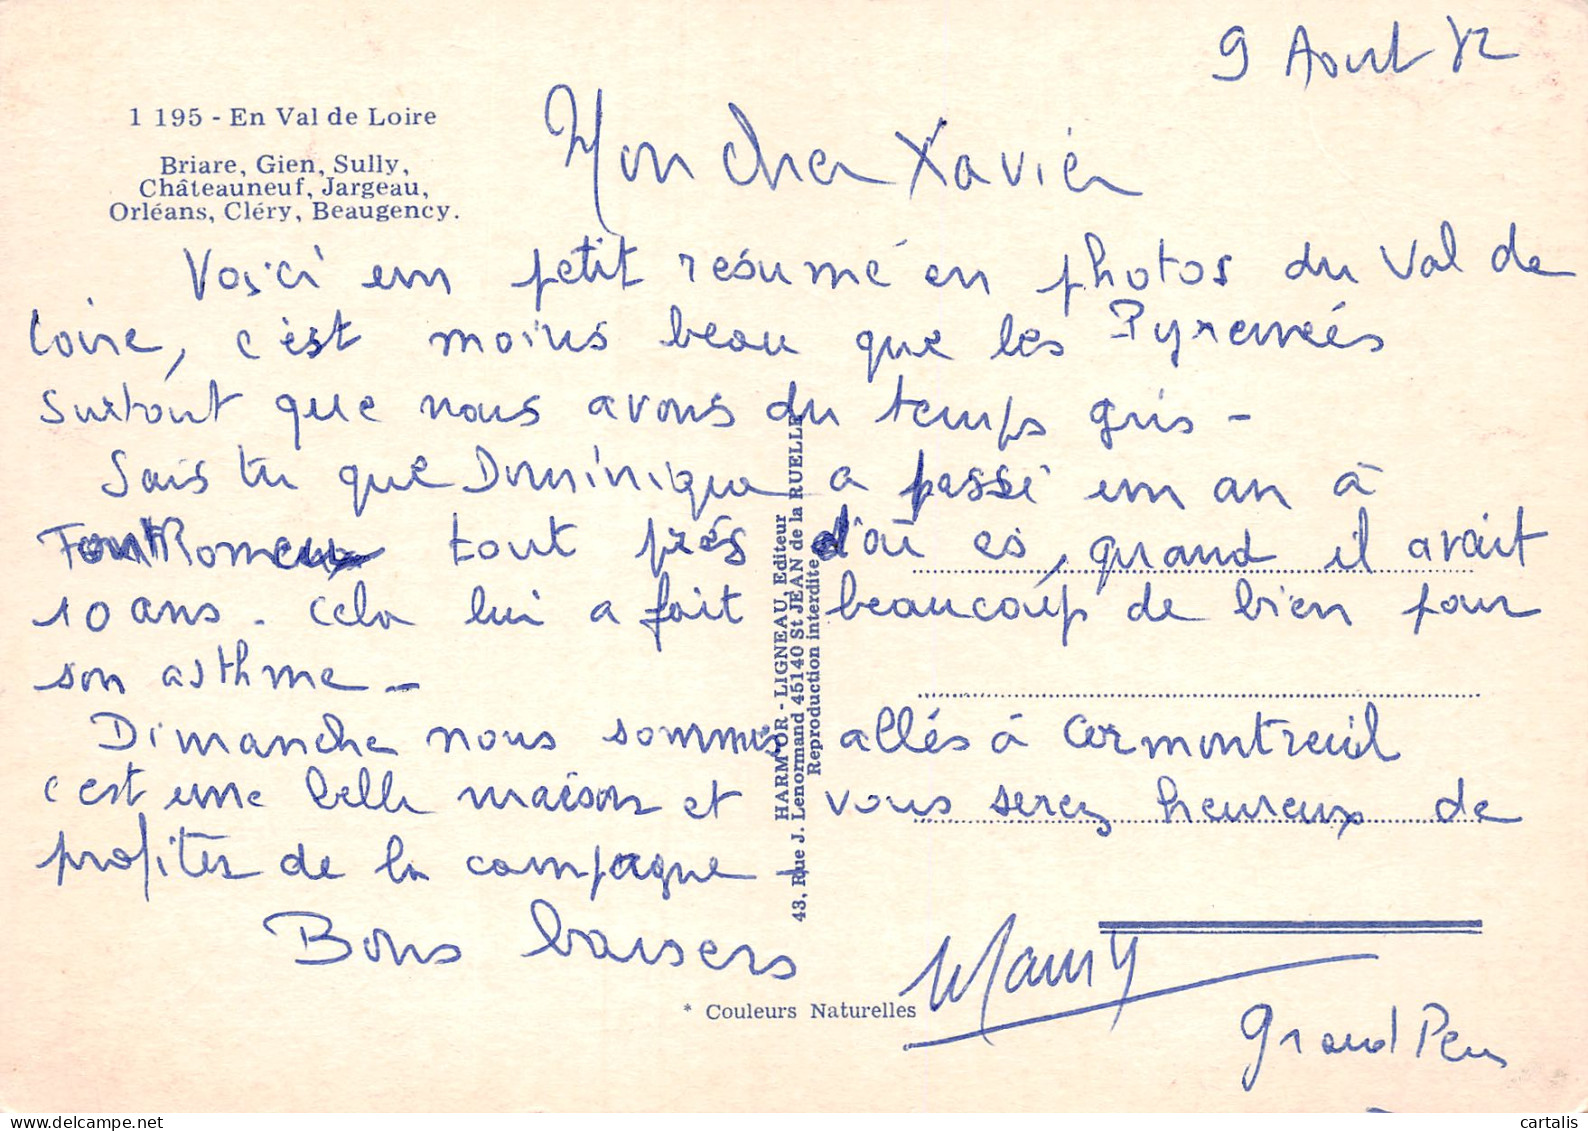 9 Aout 82
1 195 - En Val de Loire
Briare, Gien, Sully,
Châteauneuf, Jargeau,
Orléans, Cléry, Beaugency.
Mon cher Xavier
Voici un petit résumé en photos du Val de
Loire, c'est moins beau que les Pyrenées
Surtout que nous avons du temps gris -
Sais tu que Dominique a passé un an à
Font Romeu tout près d'où es, quand il avait
10 ans. Cela lui a fait beaucoup de bien pour
son asthme -
Dimanche nous sommes allés à Cormontreuil
c'est une belle maison et vous serez heureux de
profiter de la campagne -
Bons baisers
Grand Père
HARM'OR - LIGNEAU, Editeur
43, Rue J. Lenormand 45140 St JEAN de la RUELLE
Reproduction interdite
* Couleurs Naturelles
cartalis